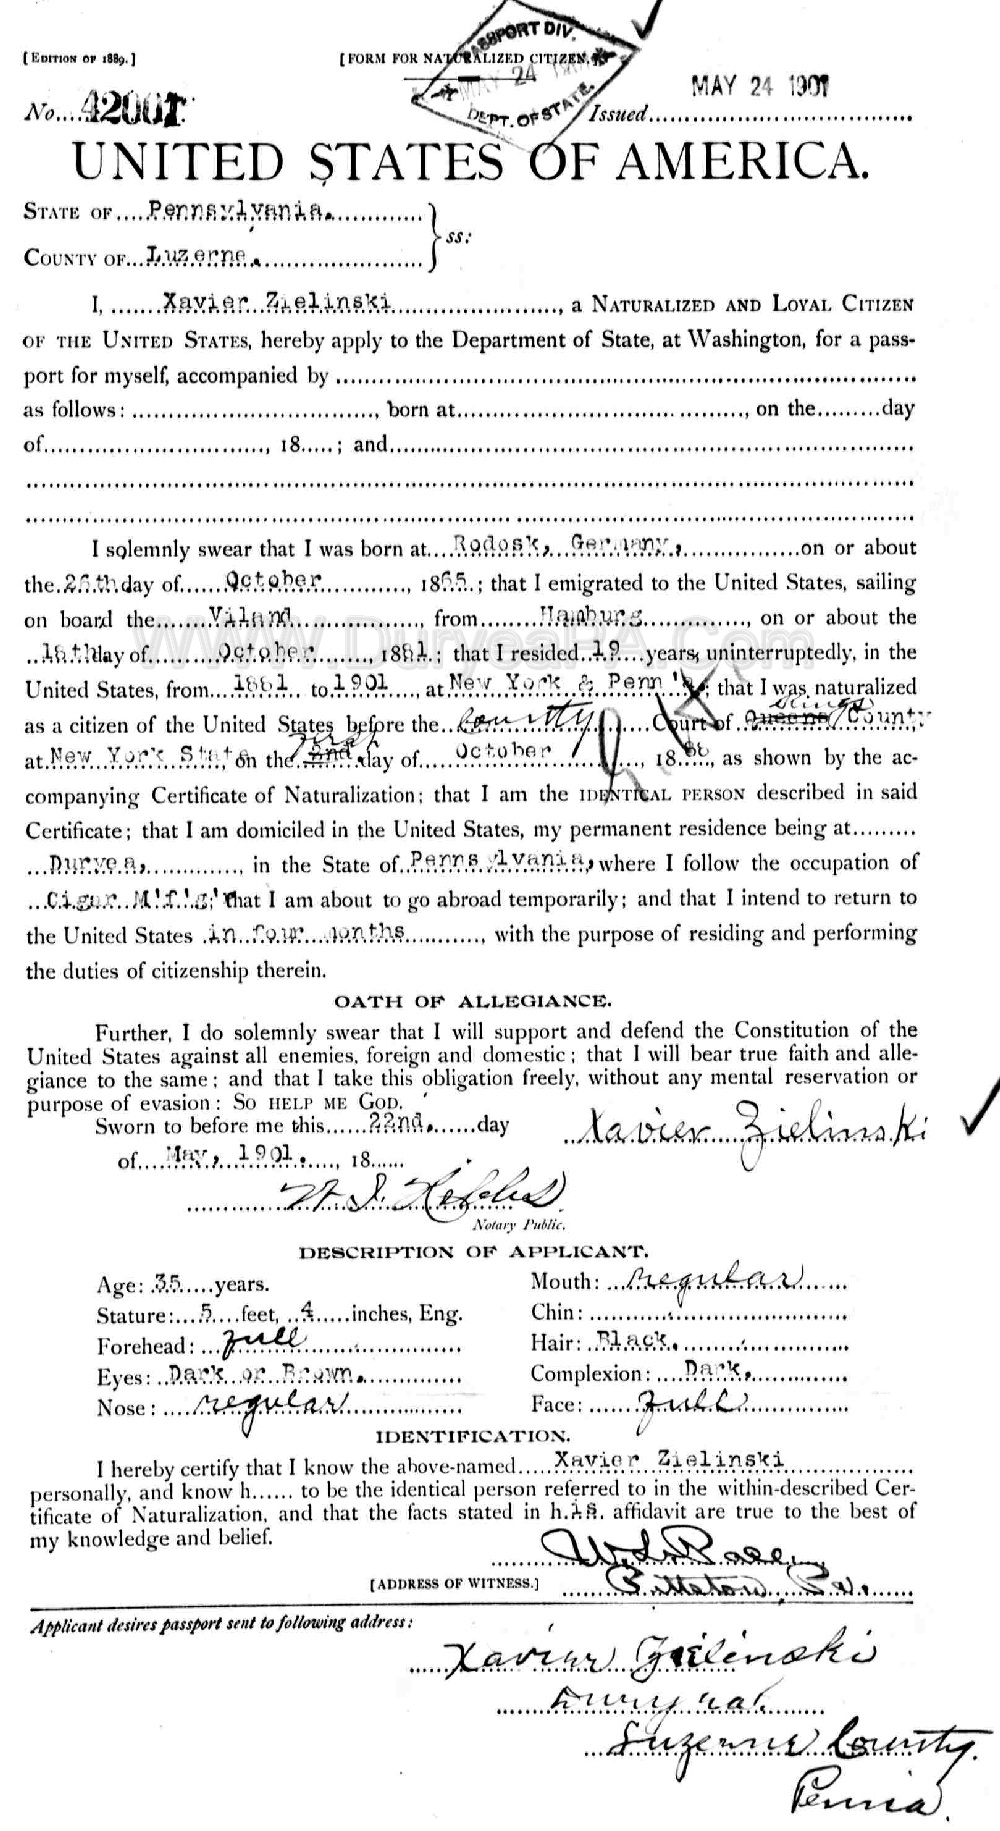 [EDITION OF 1889.]
[FORM FOR NATURALIZED CITIZEN.]
PASSPORT DIV.
MAY 24
DEPT. OF STATE.
No. 42001.
Issued MAY 24 1901
UNITED STATES OF AMERICA.
STATE OF Pennsylvania.
COUNTY OF Luzerne.
ss:
I, Xavier Zielinski, a NATURALIZED AND LOYAL CITIZEN
OF THE UNITED STATES, hereby apply to the Department of State, at Washington, for a pass-
port for myself, accompanied by
as follows: , born at , on the day
of , 18 ; and
I solemnly swear that I was born at Rodosk, Germany, on or about
the 26th day of October, 1865; that I emigrated to the United States, sailing
on board the Viland, from Hamburg, on or about the
18th day of October, 1881; that I resided 19 years, uninterruptedly, in the
United States, from 1881 to 1901, at New York & Penn'a; that I was naturalized
as a citizen of the United States before the County Court of Queens Kings County
at New York State, on the 22nd first day of October, 1888, as shown by the ac-
companying Certificate of Naturalization; that I am the IDENTICAL PERSON described in said
Certificate; that I am domiciled in the United States, my permanent residence being at
Duryea, in the State of Pennsylvania, where I follow the occupation of
Cigar M'f'g; that I am about to go abroad temporarily; and that I intend to return to
the United States in four months, with the purpose of residing and performing
the duties of citizenship therein.
OATH OF ALLEGIANCE.
Further, I do solemnly swear that I will support and defend the Constitution of the
United States against all enemies, foreign and domestic; that I will bear true faith and alle-
giance to the same; and that I take this obligation freely, without any mental reservation or
purpose of evasion: SO HELP ME GOD.
Sworn to before me this 22nd. day
Xavier Zielinski
of May, 1901., 18
Notary Public.
DESCRIPTION OF APPLICANT.
Age: 35 years.
Mouth: regular
Stature: 5 feet, 4 inches, Eng.
Chin:
Forehead: full
Hair: Black.
Eyes: Dark or Brown.
Complexion: Dark.
Nose: regular
Face: full
IDENTIFICATION.
I hereby certify that I know the above-named Xavier Zielinski
personally, and know h to be the identical person referred to in the within-described Cer-
tificate of Naturalization, and that the facts stated in his affidavit are true to the best of
my knowledge and belief.
[ADDRESS OF WITNESS.] Pittston, Pa.
Applicant desires passport sent to following address:
Xavier Zielinski
Duryea.
Luzerne County.
Penna.
WWW.DuryeaPA.Com